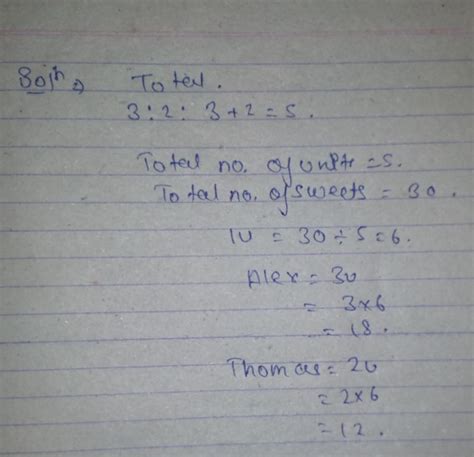 Soln ⇒ Total.
3:2: 3+2=5.
Total no. of units =5.
Total no. of sweets = 30.
1u = 30÷5=6.
Alex = 3u
= 3×6
= 18.
Thomas = 2u
= 2×6
= 12.